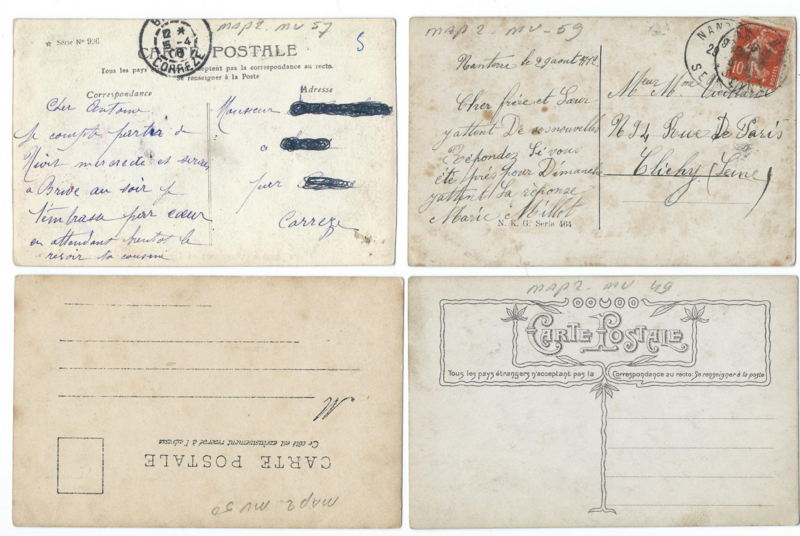 map2. mv 57
5
★ Série Nº 996
CARTE POSTALE
Tous les pays acceptent pas la correspondance au recto.
Se renseigner à la Poste
Correspondance
Adresse
12
15-4
CORREZE
Cher Antoine
je compte partir de
mercredi et
à Brive au soir je
t'embrasse par cœur
en attendant bientot le
revoir ta cousine
Monsieur
à
par
Correze
map 2. mv-59
NANTERRE
Nanterre le 29 aout
Cher frére et Sœur
j'attent De vos nouvelles
Répondez Si vous
éte près pour Dimanche
j'attent La réponse
Marie Millot
N. K. G. Serie 464
10
Mme
Nº 94 Rue De Paris
Clichy (Seine)
M
Ce côté est exclusivement réservé à l'adresse
CARTE POSTALE
map2. mv 50
map2. mv 49
CARTE POSTALE
Tous les pays étrangers n'acceptant pas la Correspondance au recto. Se renseigner à la poste